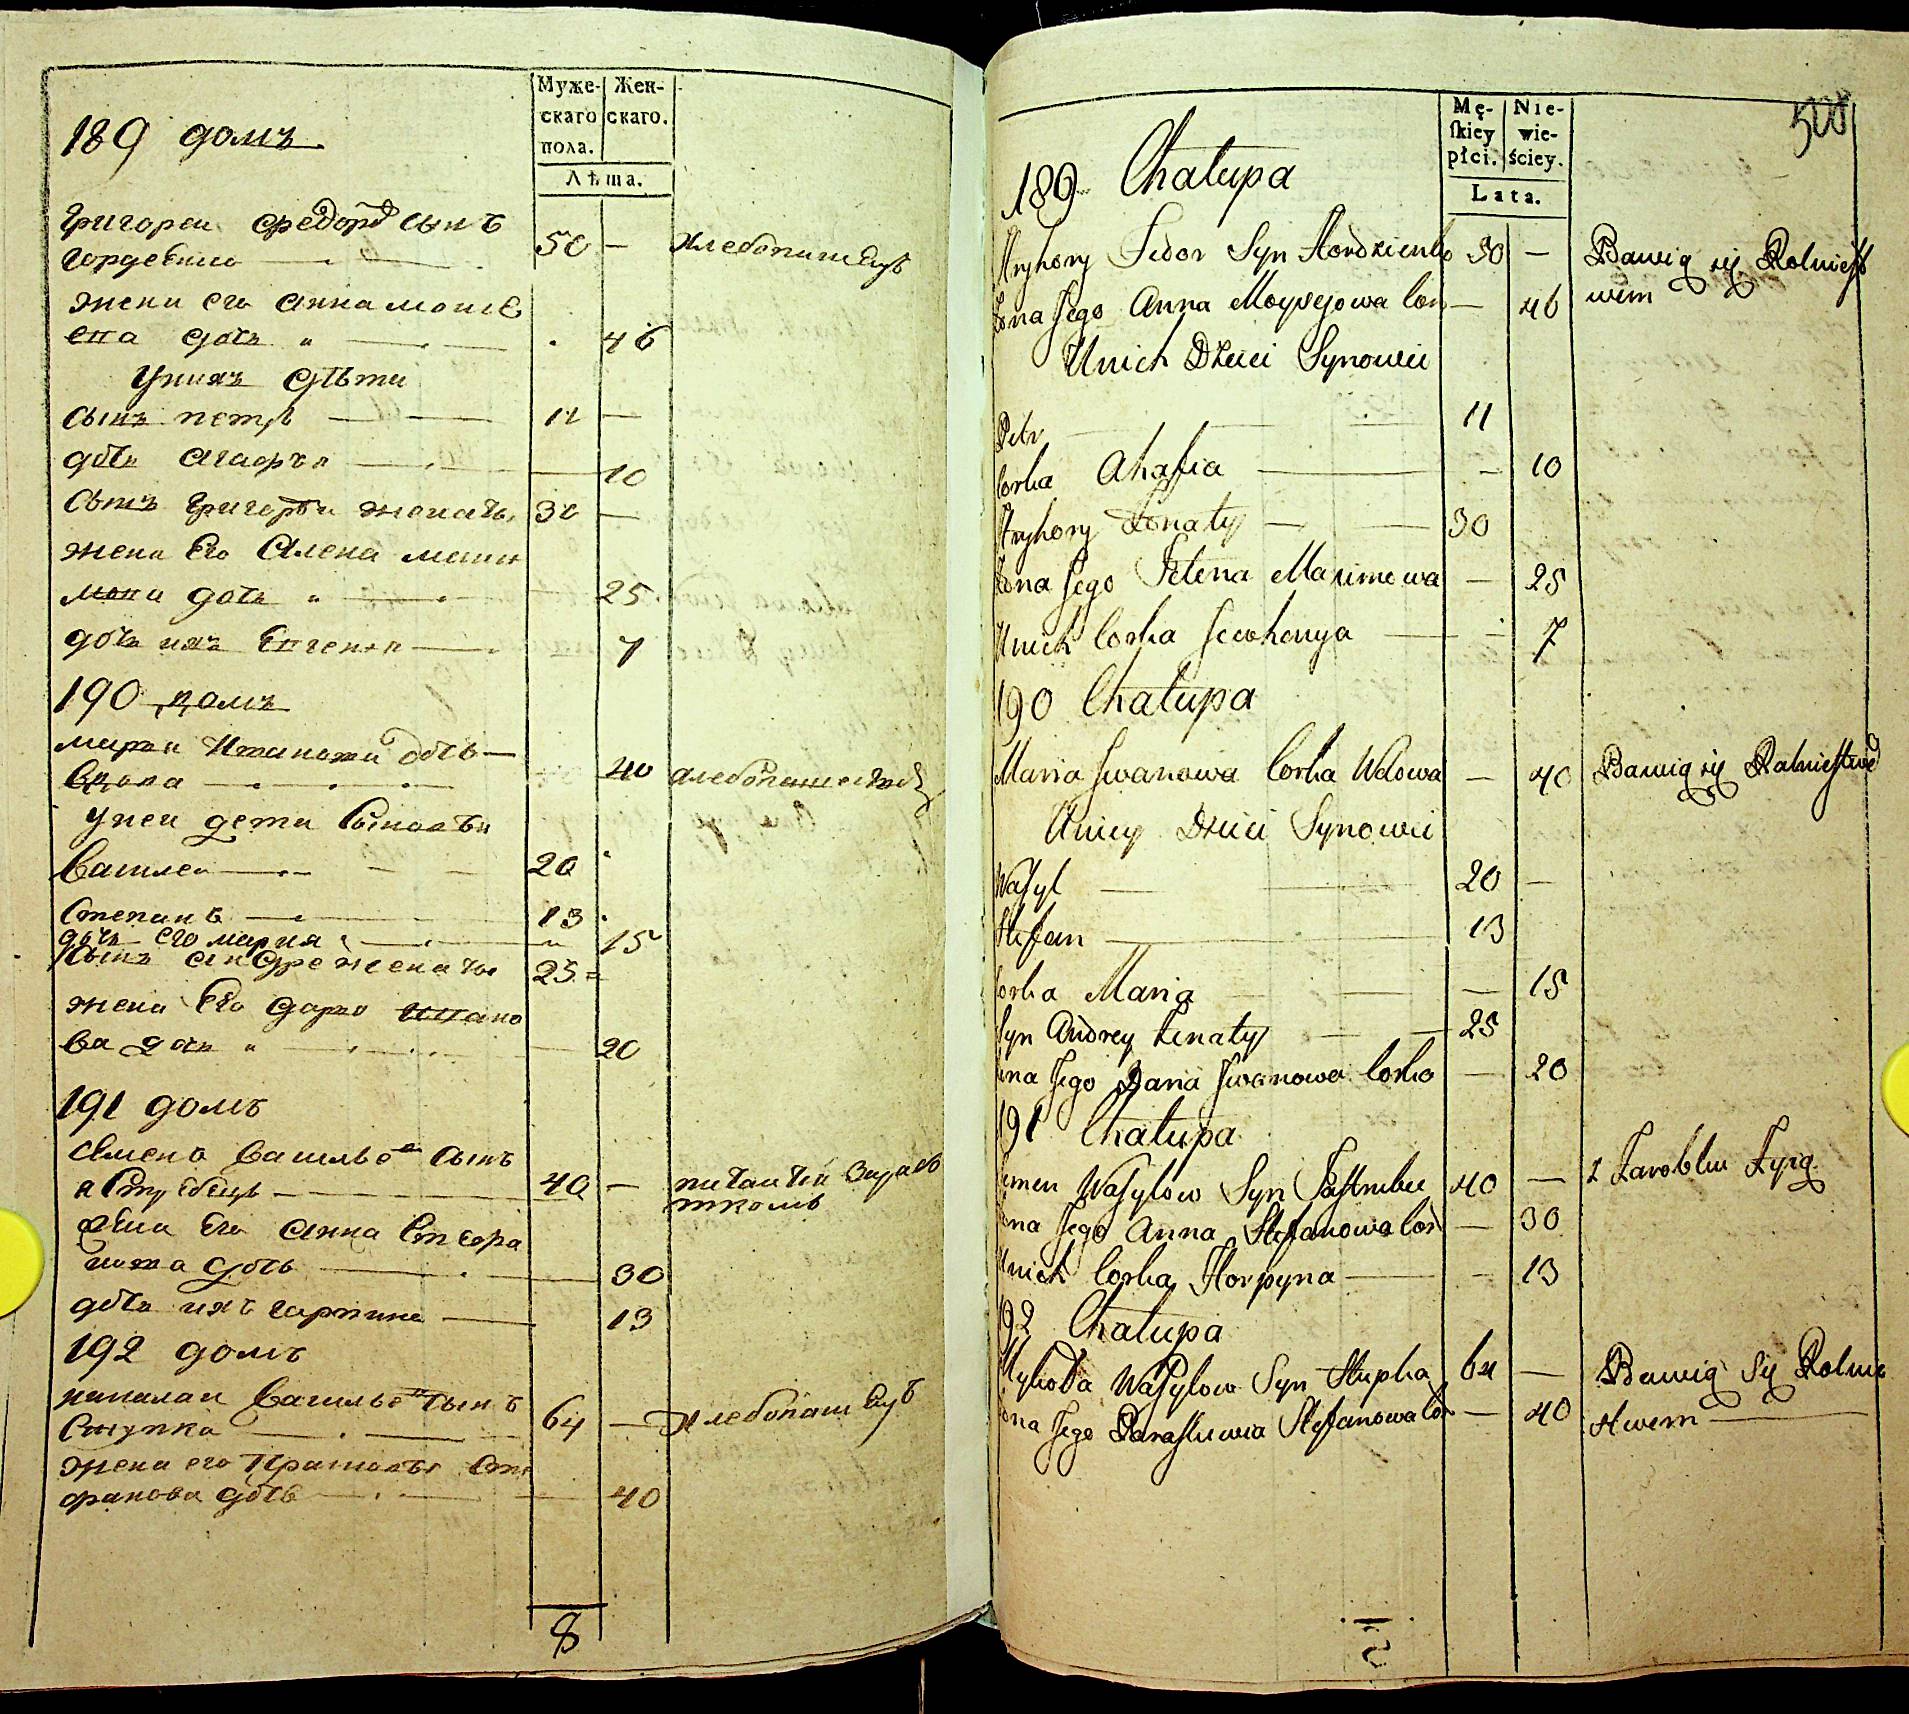 Муже- Жен-
скаго скаго.
пола.
Лѣта.
189 домъ
Григореи Федоров сынъ
Гордѣенко 50 — хлебопашецъ
жена его Анна моисе
ева дочь 46
У нихъ дѣти
сынъ петръ — 11 —
дочь Агафѣя — 10
сынъ Григорѣи женатъ 30 —
жена Его Алена макси
мова дочь 25
дочь ихъ Евгения — 7
190 домъ
мария Иванова дочь —
вдова 40 хлебопашеством
У неи дети сыновѣя
Василеи — 20
Степанъ — 13
дочь его мария 15
сынъ Андреи женаты 25
жена Его дарья Ивано
ва дочь 20
191 домъ
Семенъ Васильев сынъ
Ястребецъ — 40 — питаитси Зараbо
ткомъ
жена Его Анна Стефа
нова дочь 30
дочь ихъ гарпина — 13
192 домъ
николаи Васильев сынъ
Ступка 64 — хлебопашецъ
жена его Прасковѣя Сте
фанова дочь 40
8
Mę- Nie-
skiey wie-
płci. ściey.
Lata.
508
189 Chałupa
Hryhory Fedor Syn Hordzienko 50 — Bawią się Rolnicst
Żona Jego Anna Moysejowa Cor — 46 wem
U nich Dzieci Synowie
Petr 11
Corka Ahafia — 10
Hryhory Żonaty — 30
Żona Jego Helena Maximowa — 25
U nich Corka Jewhenya — 7
190 Chałupa
Maria Iwanowa Corka Wdowa — 40 Bawią się Rolnictwe
U niey Dzieci Synowie
Wasyl — 20 —
Stefan — 13
Corka Maria — 15
Syn Andrey Żenaty — 25
Żena Jego Daria Iwanowa Corka — 20
191 Chałupa
Semen Wasylow Syn Jastrubec 40 — z Zarobku Żyią
Żona Jego Anna Stefanowa Cor — 30
U nich Corka Horpyna — 13
192 Chałupa
Mykoła Wasylow Syn Stupka 64 — Bawią Się Rolnic
Żona Jego Paraskiewia Stefanowa Cor — 40 stwem —